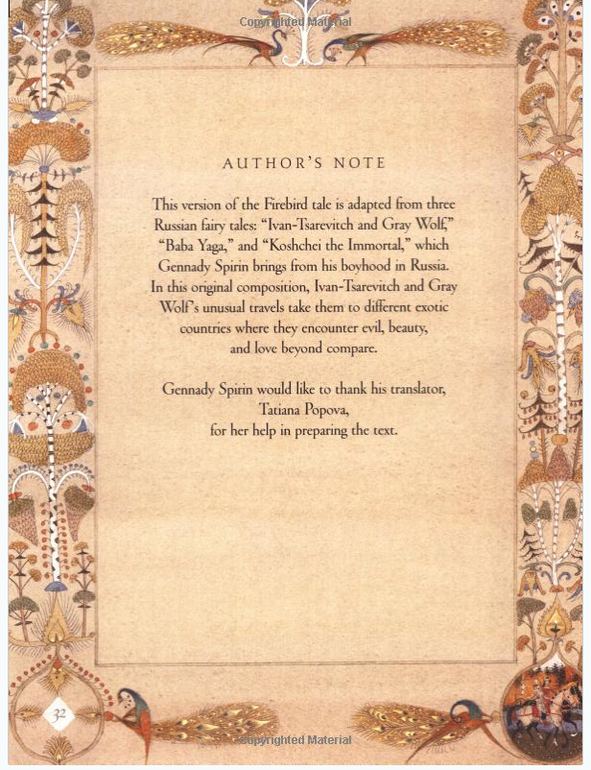 Copyrighted Material
AUTHOR'S NOTE
This version of the Firebird tale is adapted from three
Russian fairy tales: “Ivan-Tsarevitch and Gray Wolf,”
“Baba Yaga,” and “Koshchei the Immortal,” which
Gennady Spirin brings from his boyhood in Russia.
In this original composition, Ivan-Tsarevitch and Gray
Wolf's unusual travels take them to different exotic
countries where they encounter evil, beauty,
and love beyond compare.
Gennady Spirin would like to thank his translator,
Tatiana Popova,
for her help in preparing the text.
32
Copyrighted Material